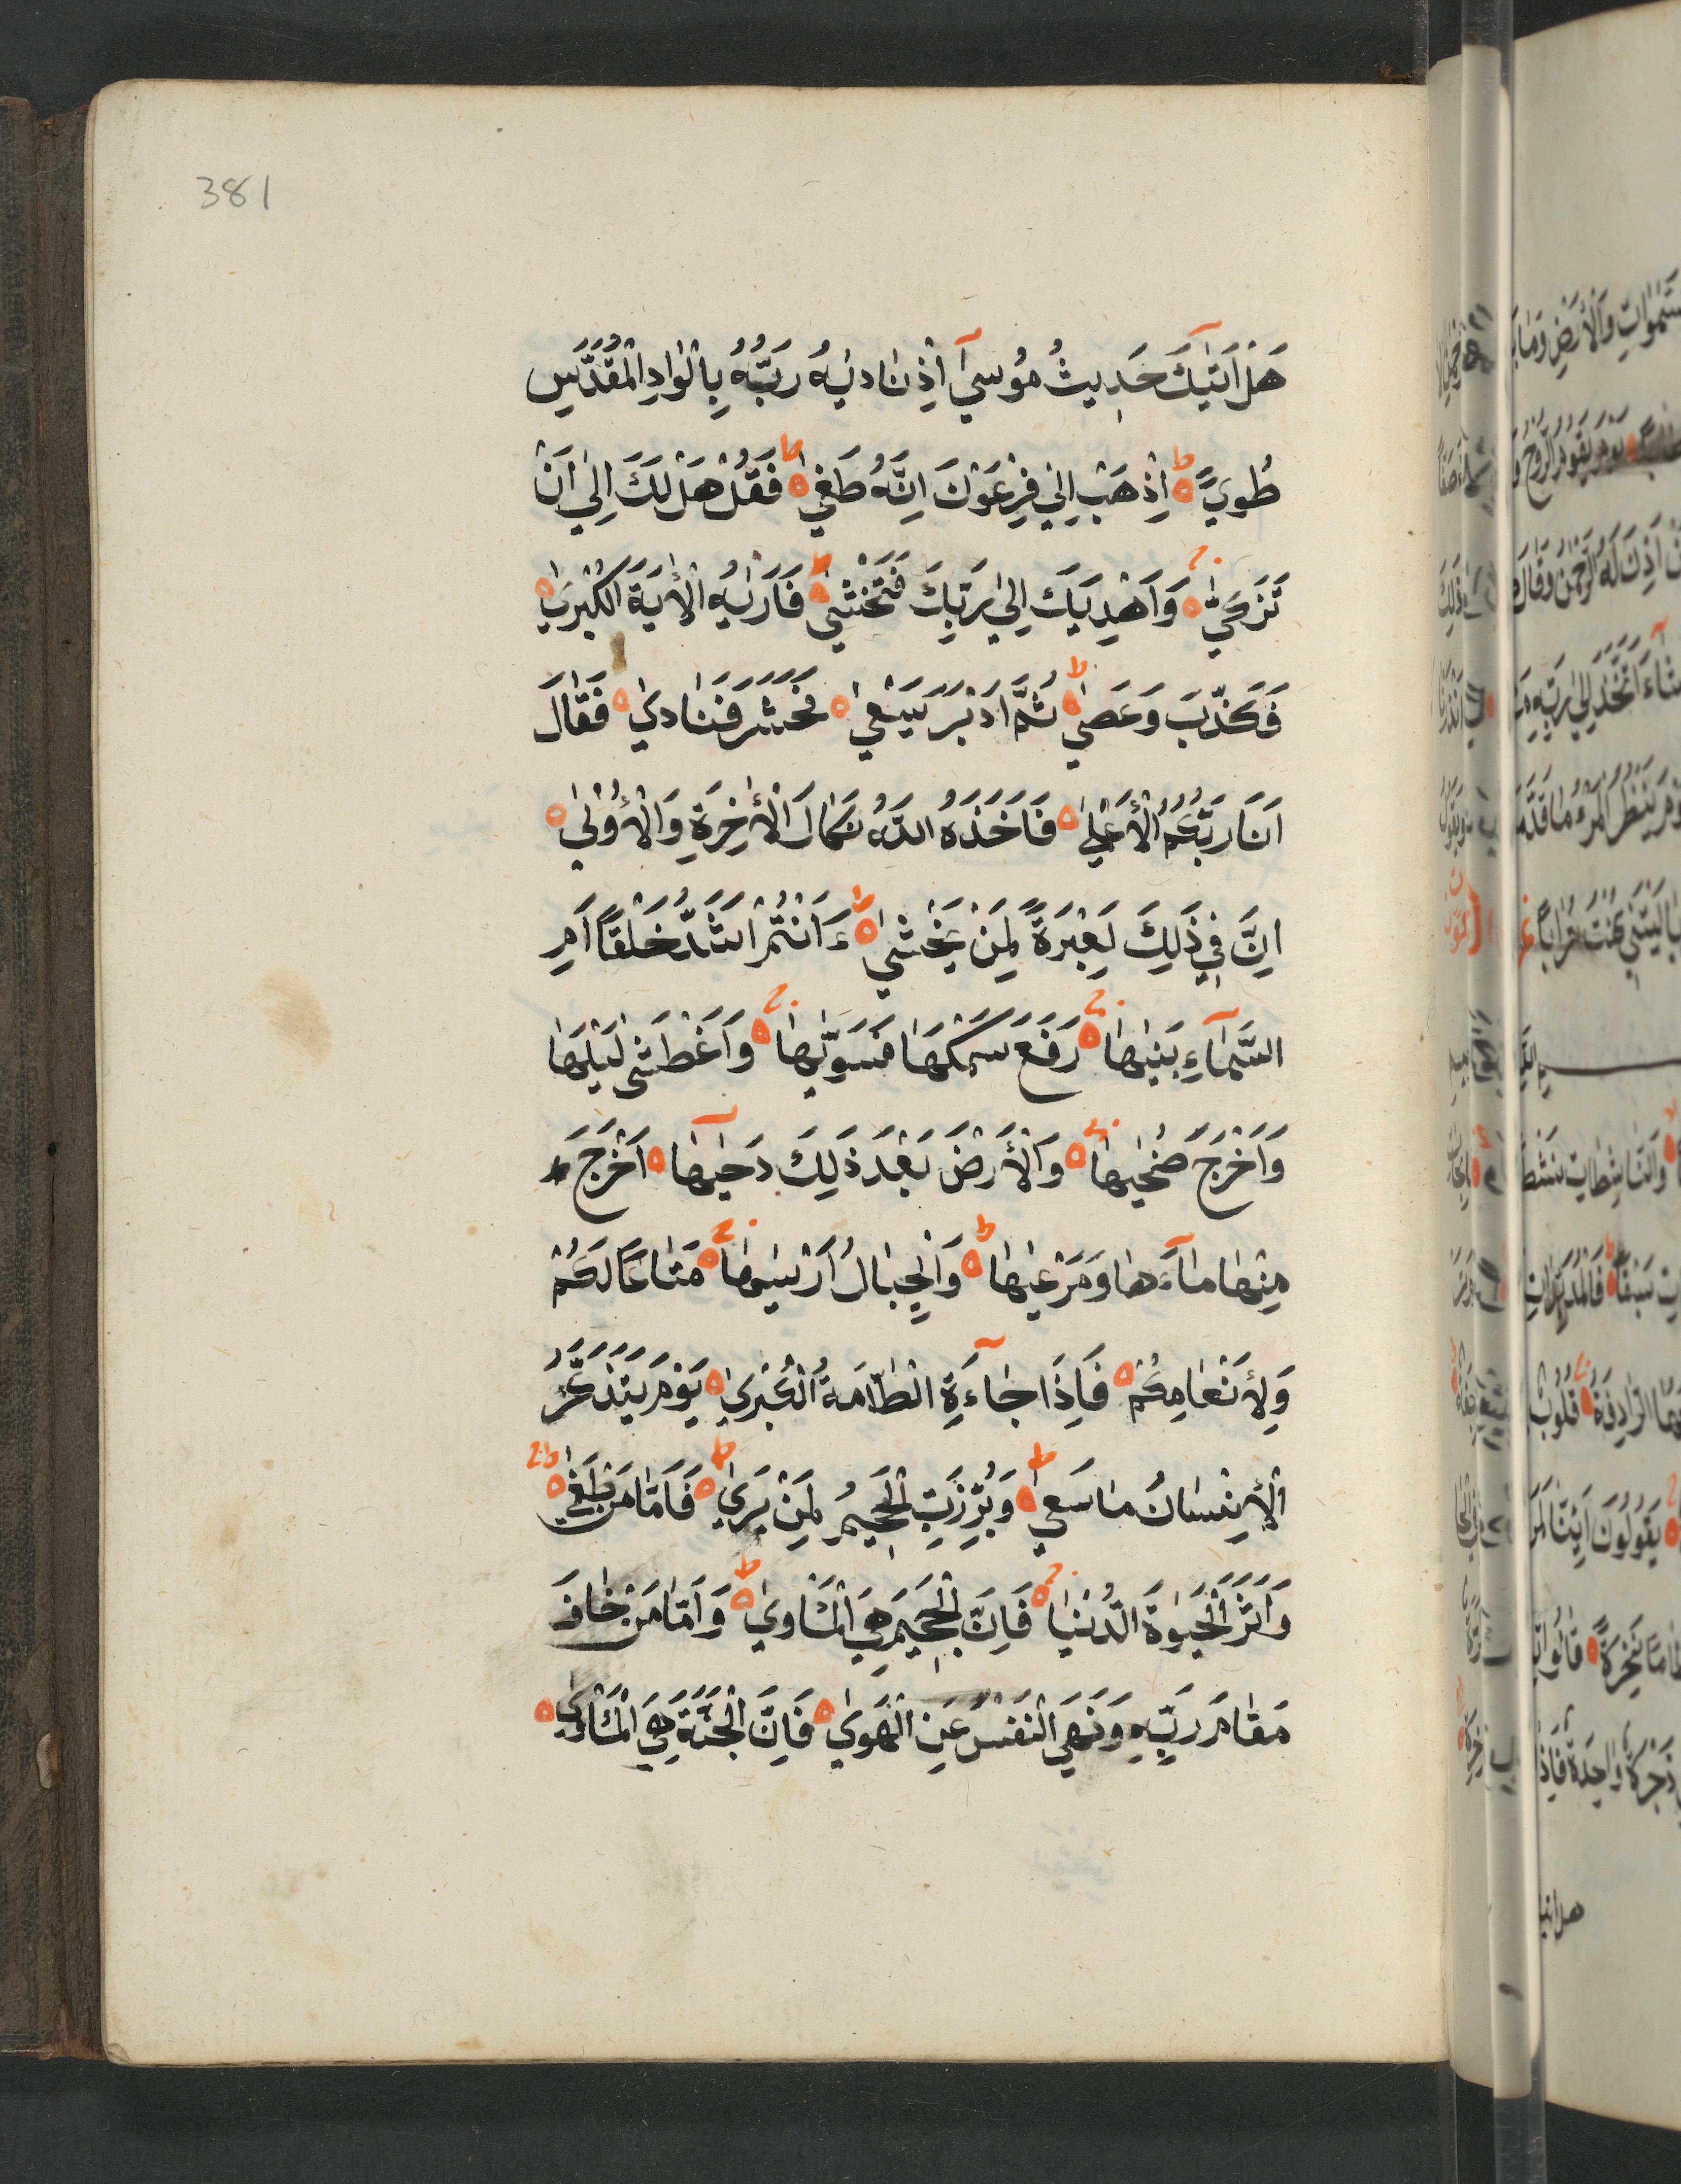 381
هَلْ اَتٰيكَ حَدِيثُ مُوسٰيٓ اِذْ نَادٰيهُ رَبُّهُ بِالْوَادِ الْمُقَدَّسِ
طُويً اِذْهَبْ اِلٰي فِرْعَوْنَ اِنَّهُ طَغٰي فَقُلْ هَلْ لَكَ اِلٰي اَنْ
تَزَكّٰي وَاَهْدِيَكَ اِلٰي رَبِّكَ فَتَخْشٰي فَاَرٰيهُ الْاٰيَةَ الْكُبْرٰي
فَكَذَّبَ وَعَصٰي ثُمَّ اَدْبَرَ يَسْعٰي فَحَشَرَ فَنَادٰي فَقَالَ
اَنَا رَبُّكُمُ الْاَعْلٰي فَاَخَذَهُ اللّٰهُ نَكَالَ الْاٰخِرَةِ وَالْاُوْلٰي
اِنَّ فِي ذَلِكَ لَعِبْرَةً لِمَنْ يَخْشٰي ءَاَنْتُمْ اَشَدُّ خَلْقًا اَمِ
السَّمَآءِ بَنٰيهَا رَفَعَ سَمْكَهَا فَسَوّٰيهَا وَاَغْطَشَ لَيْلَهَا
وَاَخْرَجَ ضُحٰيهَا وَالْاَرْضَ بَعْدَ ذَلِكَ دَحٰيهَا اَخْرَجَ
مِنْهَا مَآءَهَا وَمَرْعٰيهَا وَالْجِبَالُ اَرْسٰيهَا مَتَاعًا لَكُمْ
وَلِاَنْعَامِكُمْ فَاِذَا جَآءَةِ الْطَّامَةُ الْكُبْرٰي يَوْمَ يَتَذَكَّرُ
الْاِنْسَانُ مَا سَعٰي وَبُرِّزَتِ الْجَحِيمُ لِمَنْ يَرٰي فَاَمَّا مَنْ طَغٰي
وَاٰثَرَ الْحَيٰوةَ الدُّنْيَا فَاِنَّ الْجَحِيمَ هِيَ الْمَاْوٰي وَاَمَّا مَنْ خَافَ
مَقَامَ رَبِّهِ وَنَهَي النَفْسَ عَنِ الْهَوٰي فَاِنَّ الْجَنَّةَ هِيَ الْمَاْوٰي